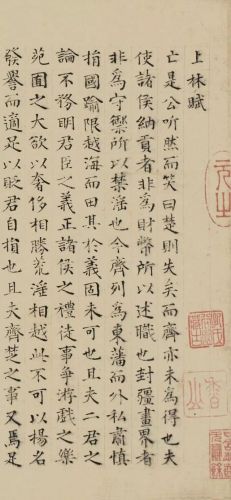 上林賦
亡是公听然而笑曰楚則失矣而齊亦未為得也夫
使諸侯納貢者非為財幣所以述職也封疆畫界者
非為守禦所以禁淫也今齊列為東藩而外私肅慎
捐國踰限越海而田其於義固未可也且夫二君之
論不務明君臣之義正諸侯之禮徒事爭游戲之樂
苑囿之大欲以奢侈相勝荒淫相越此不可以揚名
發譽而適足以貶君自損也且夫齊楚之事又焉足